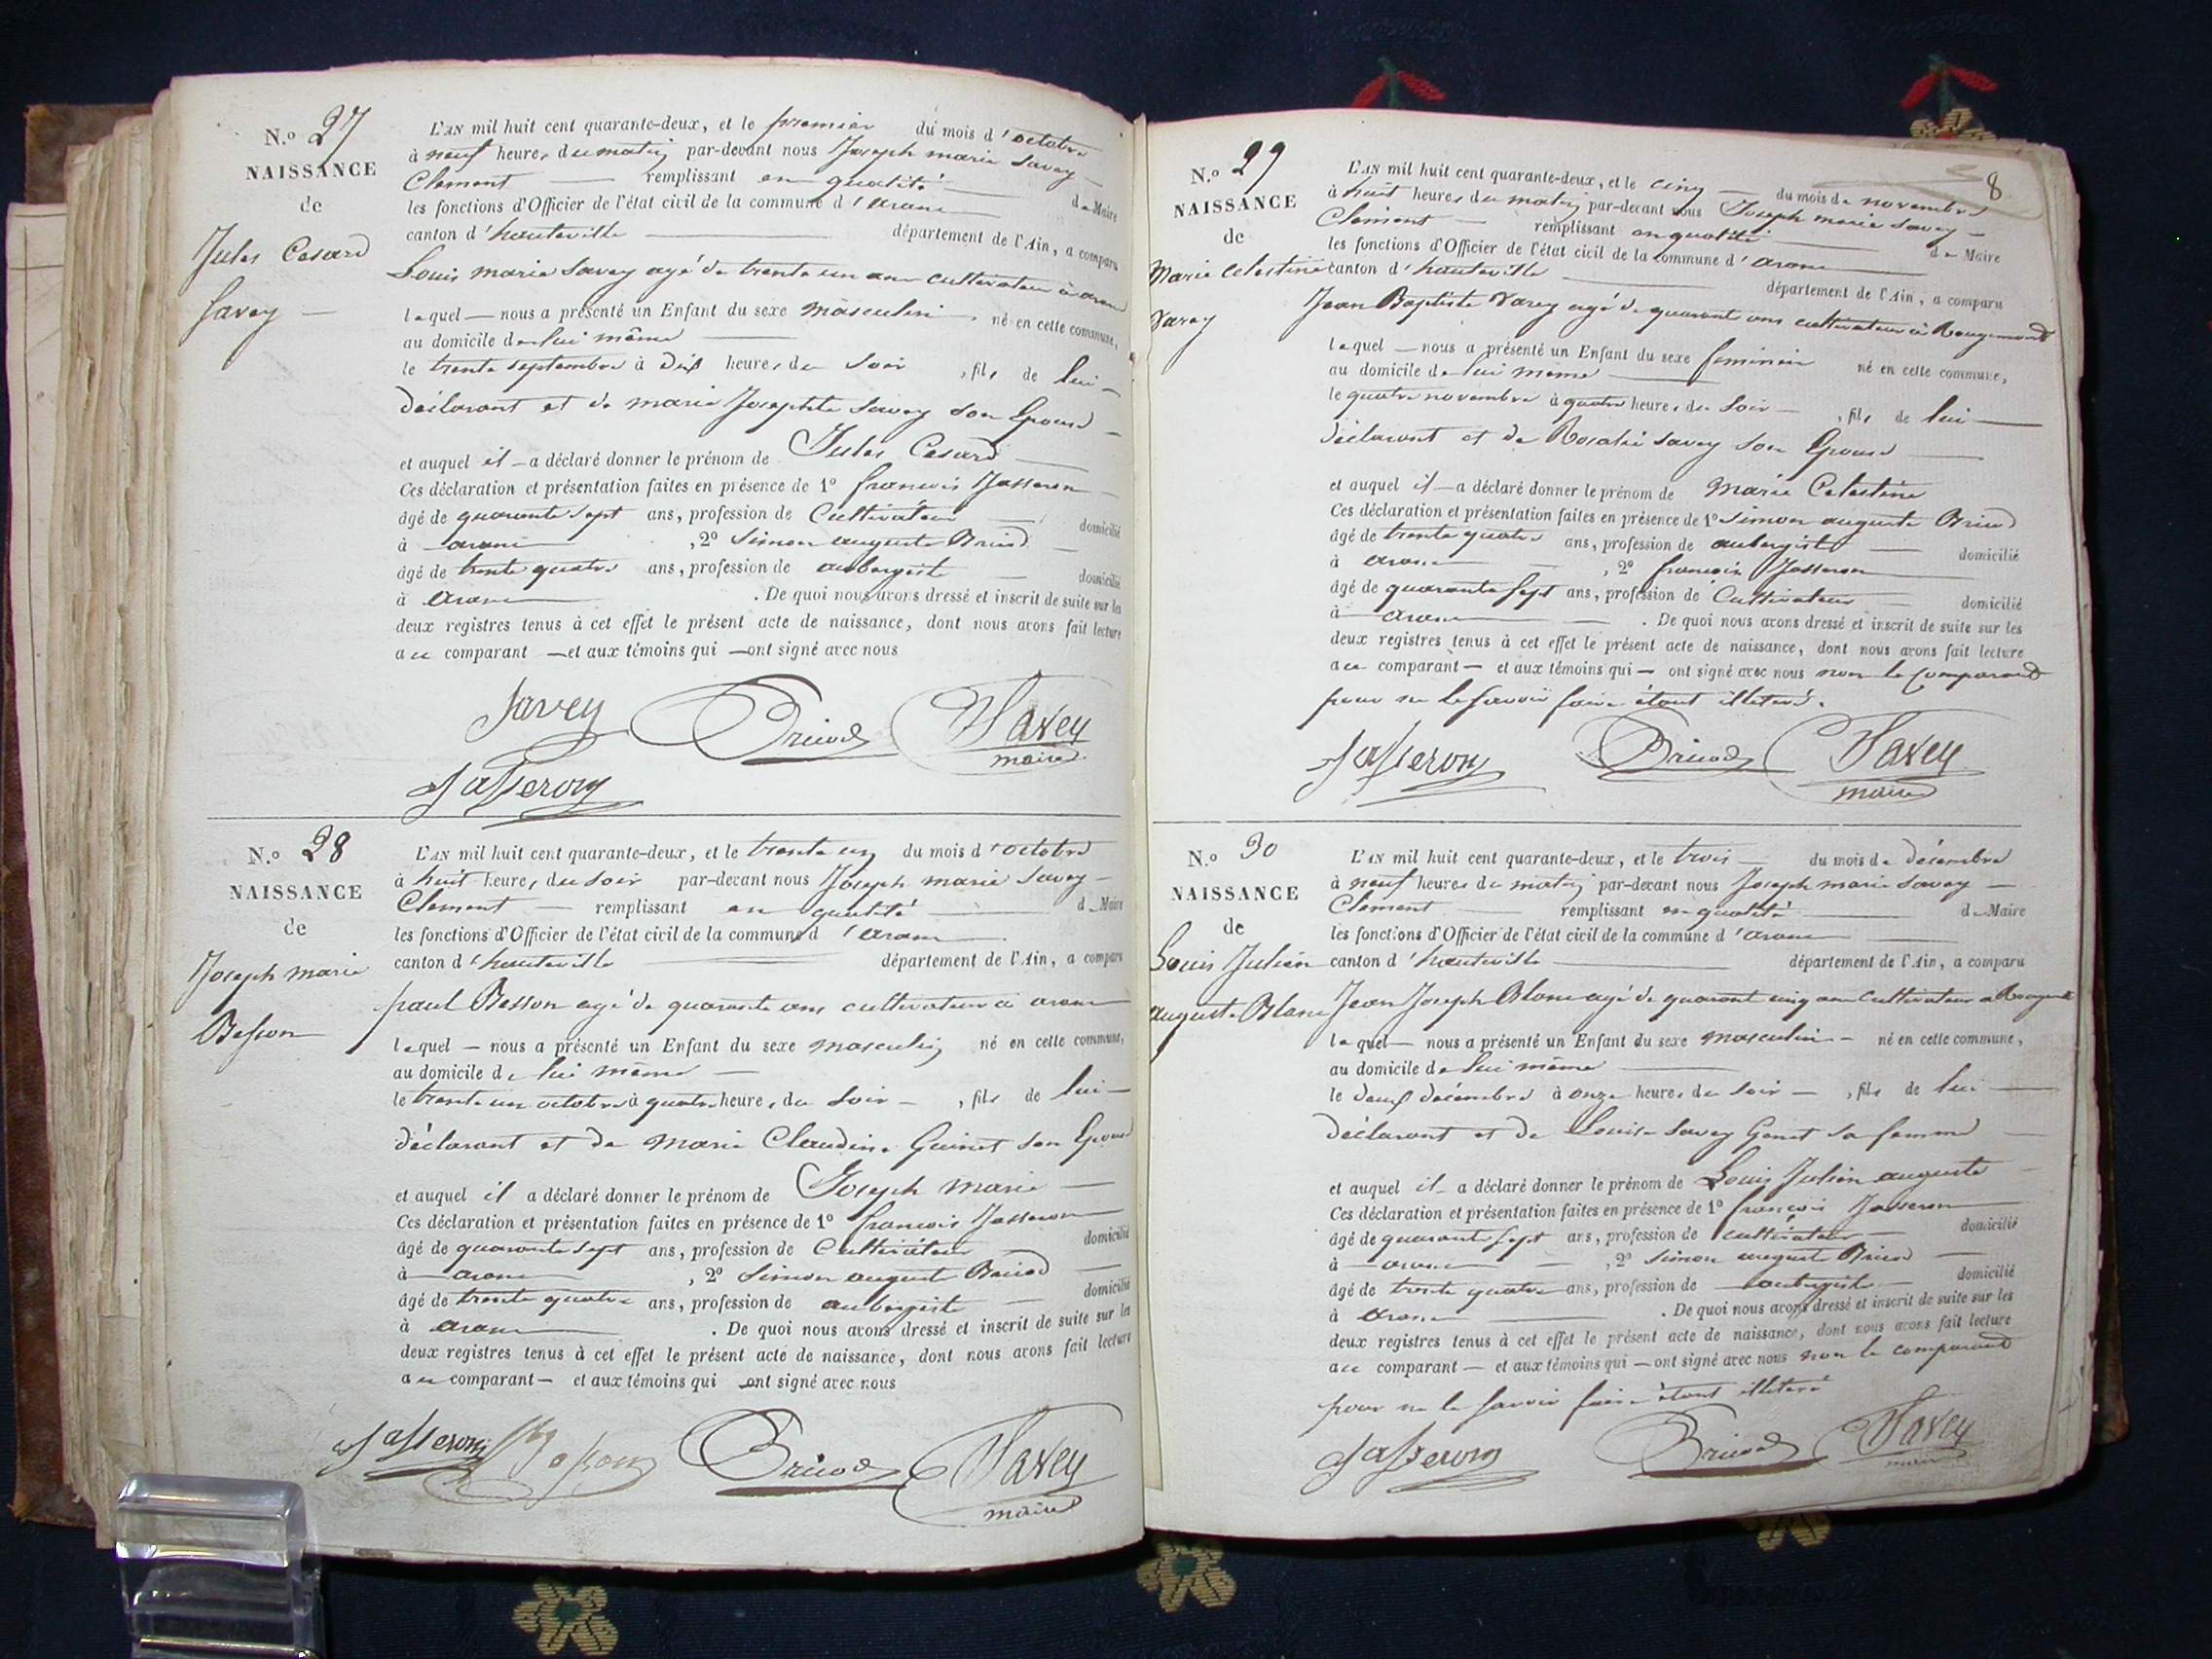 N.o 27
NAISSANCE
de
Jules Cesard
Savey
L'AN mil huit cent quarante-deux, et le premier du mois d'octobre
à neuf heures du matin par-devant nous Joseph marie Savey
Clement remplissant en qualité de Maire
les fonctions d'Officier de l'état civil de la commune d'aranc
canton d'hauteville département de l'Ain, a comparu
Louis marie Savey agé de trente un ans cultivateur à aranc
lequel nous a présenté un Enfant du sexe masculin né en cette commune,
au domicile de lui même
le trente septembre à dix heures du soir, fils de lui
déclarant et de marie Josephte Savey son Epouse
et auquel il a déclaré donner le prénom de Jules Cesard
Ces déclaration et présentation faites en présence de 1º francois Jasseron
âgé de quarante sept ans, profession de Cultivateur domicilié
à aranc, 2º Simon auguste Bricod
âgé de trente quatre ans, profession de aubergiste domicilié
à aranc. De quoi nous avons dressé et inscrit de suite sur les
deux registres tenus à cet effet le présent acte de naissance, dont nous avons fait lecture
au comparant et aux témoins qui ont signé avec nous
Savey Bricod Savey
maire
Jasseron
N.o 28
NAISSANCE
de
Joseph marie
Besson
L'AN mil huit cent quarante-deux, et le trente un du mois d'octobre
à huit heures du soir par-devant nous Joseph marie Savey
Clement remplissant en qualité de Maire
les fonctions d'Officier de l'état civil de la commune d'aranc
canton d'hauteville département de l'Ain, a comparu
paul Besson agé de quarante ans cultivateur à aranc
lequel nous a présenté un Enfant du sexe masculin né en cette commune,
au domicile de lui même
le trente un octobre à quatre heures du soir, fils de lui
déclarant et de marie Claudine Guinet son Epouse
et auquel il a déclaré donner le prénom de Joseph marie
Ces déclaration et présentation faites en présence de 1º francois Jasseron
âgé de quarante sept ans, profession de Cultivateur domicilié
à aranc, 2º Simon auguste Bricod
âgé de trente quatre ans, profession de aubergiste domicilié
à aranc. De quoi nous avons dressé et inscrit de suite sur les
deux registres tenus à cet effet le présent acte de naissance, dont nous avons fait lecture
au comparant et aux témoins qui ont signé avec nous
Jasseron Besson Bricod Savey
maire
8
N.o 29
NAISSANCE
de
Marie Celestine
Varey
L'AN mil huit cent quarante-deux, et le cinq du mois de novembre
à huit heures du matin par-devant nous Joseph marie Savey
Clement remplissant en qualité de Maire
les fonctions d'Officier de l'état civil de la commune d'aranc
canton d'hauteville département de l'Ain, a comparu
Jean Baptiste Varey agé de quarant ans cultivateur à Rougemond
lequel nous a présenté un Enfant du sexe feminin né en cette commune,
au domicile de lui meme
le quatre novembre à quatre heures du soir, fils de lui
déclarant et de Rosalie Savey son Epouse
et auquel il a déclaré donner le prénom de Marie Celestine
Ces déclaration et présentation faites en présence de 1º Simon auguste Bricod
âgé de trente quatre ans, profession de aubergiste domicilié
à aranc, 2º francois Jasseron
âgé de quarante sept ans, profession de Cultivateur domicilié
à aranc. De quoi nous avons dressé et inscrit de suite sur les
deux registres tenus à cet effet le présent acte de naissance, dont nous avons fait lecture
au comparant et aux témoins qui ont signé avec nous non le comparand
pour ne le savoir faire étant illeteré.
Jasseron Bricod Savey
maire
N.o 30
NAISSANCE
de
Louis Julien
auguste Blanc
L'AN mil huit cent quarante-deux, et le trois du mois de décembre
à neuf heures du matin par-devant nous Joseph marie Savey
Clement remplissant en qualité de Maire
les fonctions d'Officier de l'état civil de la commune d'aranc
canton d'hauteville département de l'Ain, a comparu
Jean Joseph Blanc agé de quarant cinq ans Cultivateur à
lequel nous a présenté un Enfant du sexe masculin né en cette commune,
au domicile de lui même
le deux décembre à onze heures du soir, fils de lui
déclarant et de Louise Savey Genet sa femme
et auquel il a déclaré donner le prénom de Louis Julien auguste
Ces déclaration et présentation faites en présence de 1º francois Jasseron
âgé de quarante sept ans, profession de cultivateur domicilié
à aranc, 2º Simon auguste Bricod
âgé de trente quatre ans, profession de aubergiste domicilié
à aranc. De quoi nous avons dressé et inscrit de suite sur les
deux registres tenus à cet effet le présent acte de naissance, dont nous avons fait lecture
au comparant et aux témoins qui ont signé avec nous non le comparand
pour ne le savoir faire étant illeteré
Jasseron Bricod Savey
maire